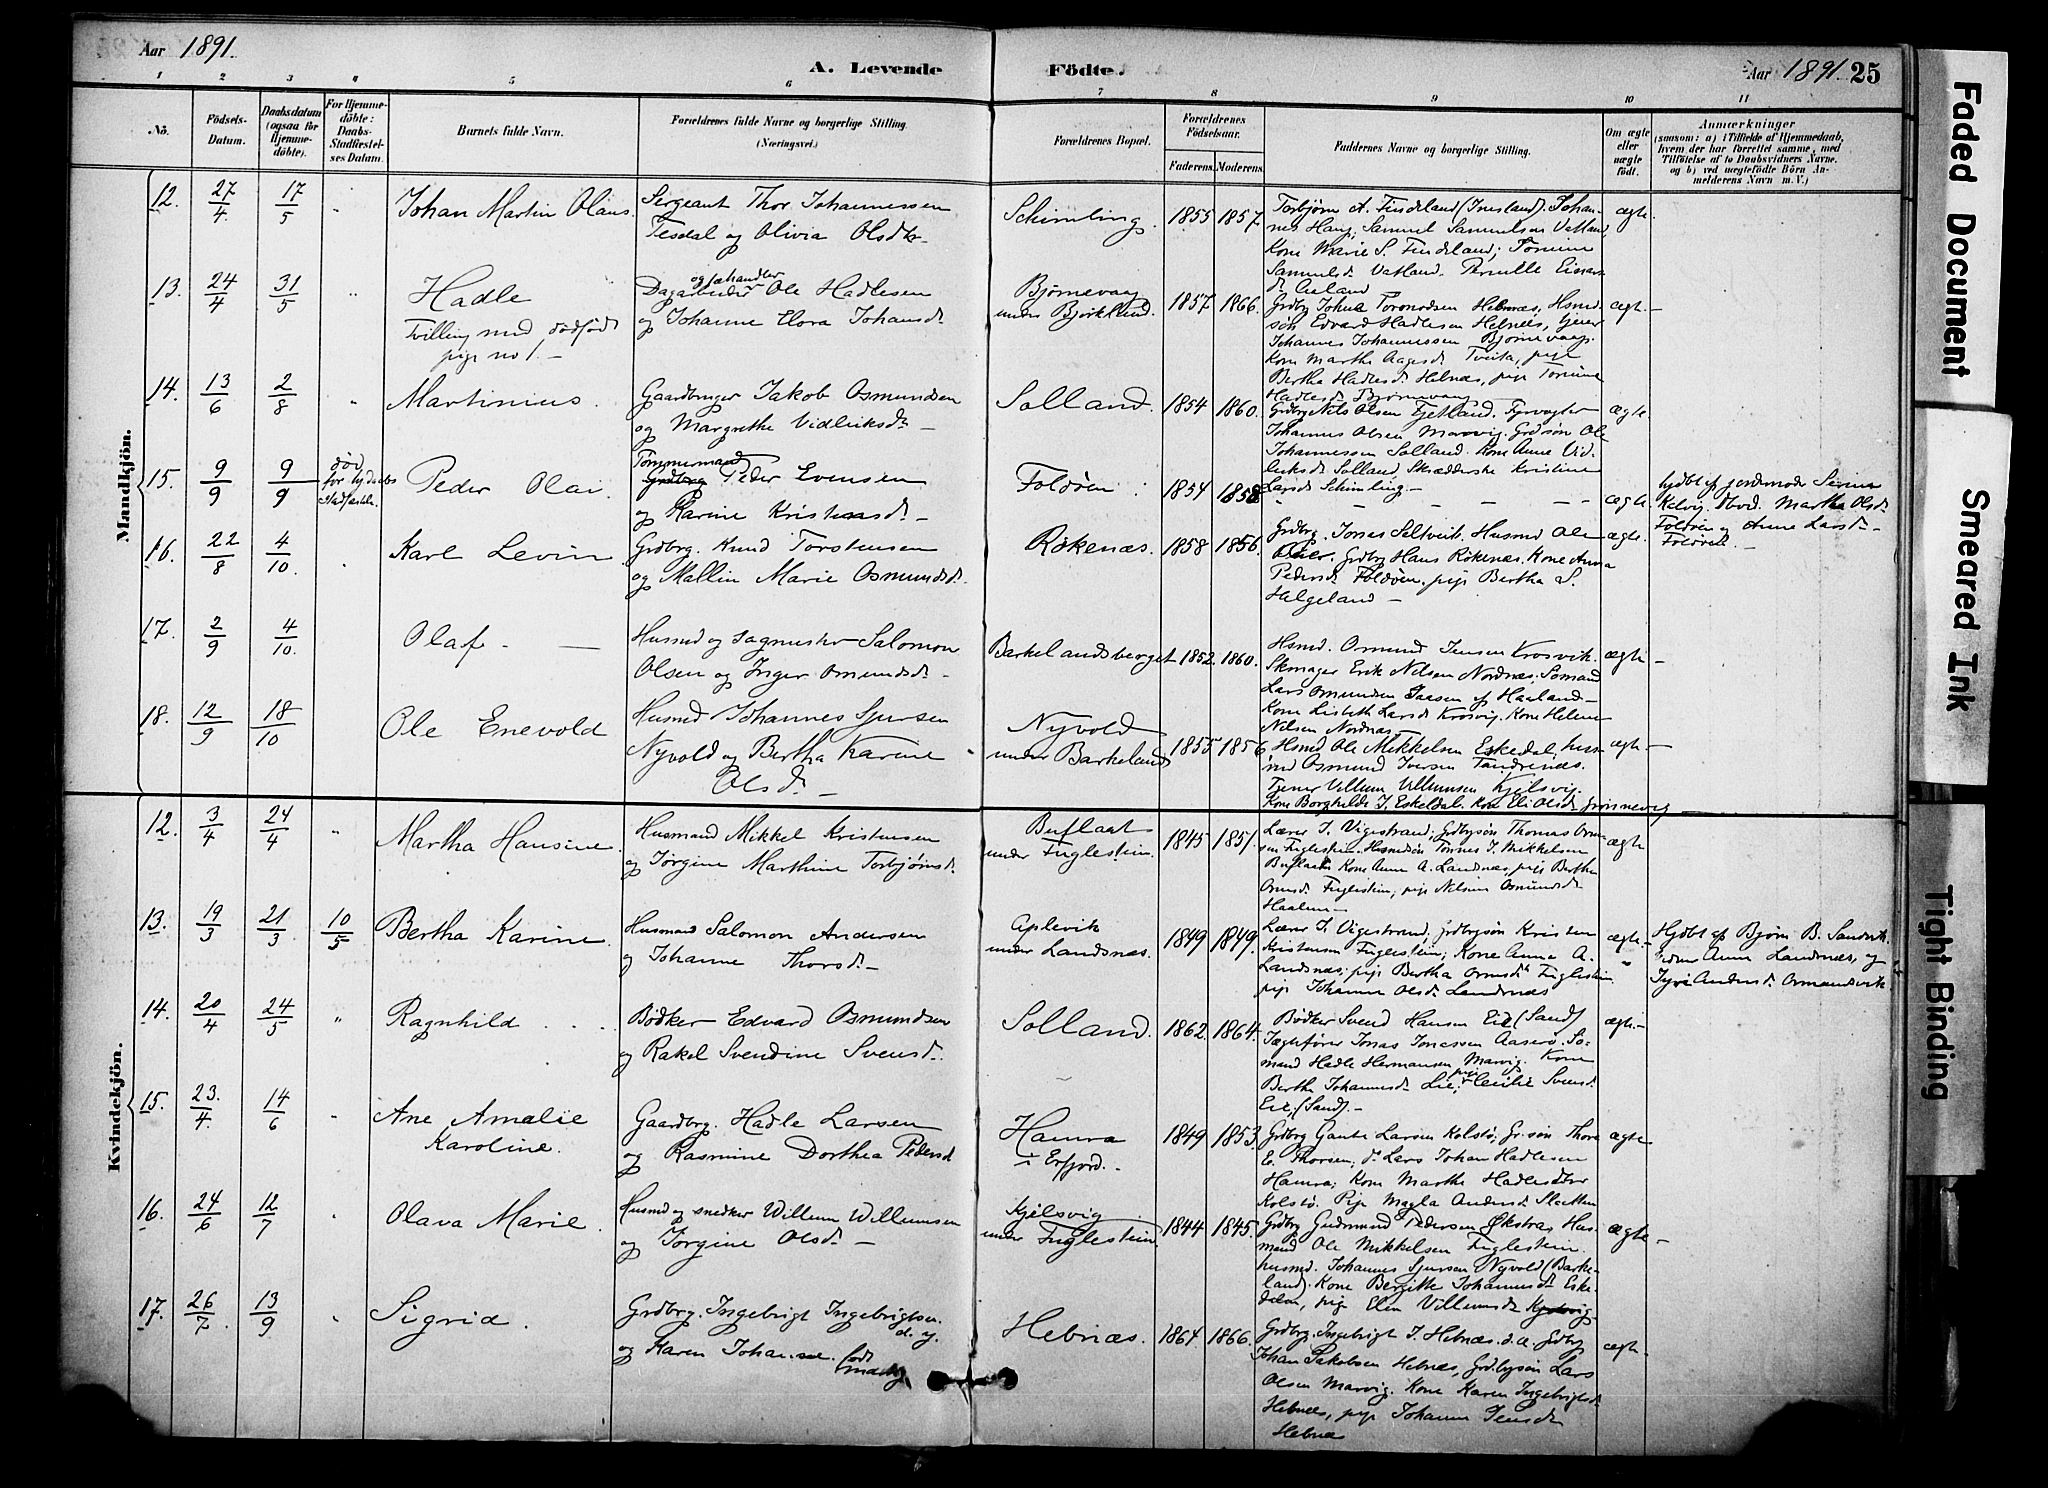 Aar 1891.
A. Levende Födte.
Aar 1891. 25
1 2 3 4 5 6 7 8 9 10 11
No.
Födsels-Datum.
Daabsdatum (ogsaa for Hjemmedöbte).
For Hjemmedöbte: Daabs-Stadfæstelses Datum.
Barnets fulde Navn.
Forældrenes fulde Navne og borgerlige Stilling. (Næringsvei.)
Forældrenes Bopæl.
Forældrenes Födselsaar.
Faderens. Moderens.
Faddernes Navne og borgerlige Stilling.
Om ægte eller uægte födt.
Anmærkninger
(saasom: a) i Tilfælde af Hjemmedaab, hvem der har forrettet samme, med Tilföielse af to Daabsvidners Navne, og b) ved uægtefödte Börn Anmelderens Navn m. V.)
Mandkjön.
12. 27/4 17/5 " Johan Martin Olaus.
Sergeant Thor Johannessen
Tesdal og Olivia Olsdtr.
Schimling. 1855 1857.
Torbjørn A. Findeland
Samuel Samuelsen Vatland,
Kone Marie S. Findland;
Samuelsd. Vatland.
ægte
13. 24/4 31/5 " Hadle
Tvilling med dødfødt
pige no 1.-
Dagarbeider og Ole Hadlesen
og Johanne Elora Johansd.
Bjørnevaag
under Bjørklund. 1857. 1866.
Edvard Hadlesen Hebnes, tjener
Johannes Johannessen Bjørnevaag.
Kone Marthe Aagesd. Tveita, pige
Bertha Hadlesd. Hebnæs, pige
Hadlesd. Bjørnevaag
ægte.-
14. 13/6 2/8 " Martinius.
Gaardbruger Jakob Osmundsen
og Margrethe Vidleiksd.-
Solland. 1854 1860.
Grdbrg Nils Olsen Fjetland. Fyrvogter
Johannes Olsen Marvig. Grdsøn Ole
Johannessen Solland. Kone Anne Vid-
leiksd. Solland. Kristine
Larsd. Schimling.-
ægte.
15. 9/9 9/9 død
før
Stadfæstelse.
Peder Olai.
Tømmermand Peder Evensen
og Karine Kristensd.-
Foldøen. 1854 1858
- - - - ægte.
hjdbt af jordmoder Serina
Martha Olsd.
Foldøen og Anne Larsd.-
Foldøen.-
16. 22/8 4/10 . Karl Levin
Grdbrg. Knud Torstensen
og Mallin Marie Osmundsd.
Røkenæs. 1858 1856.
Grdbrg. Jonas Seltveit. Husmd Ole
Grdbrg Hans Røkenæs. Kone Anna
Pedersd. Foldøen. pige Bertha S.
Helgeland-
ægte.
17. 2/9 4/10. Olaf. -
Husmd og sagmester Salomon
Olsen og Inger Osmundsd.-
Barkelandsberget 1852. 1860.
Hsmd. Osmund Jensen Krosvik.
Skomager Erik Nilsen Nordnæs, Sømand
Lars Osmundsen af Haaland-
Kone Lisbeth Larsd Krosvig. Kone Helene
Nilsen Nordnæs
ægte-
18. 12/9 18/10 Ole Enevold
Husmd Johannes Sjursen
Nyvold og Bertha Karine
Olsd.-
Nyvold
under Barkeland 1855 1856
Hsmd Ole Mikkelsen Eskedal, hus-
md Osmund Iversen Tandrenæs.
Tjener Villum Villumsen Kjølsvig.
Kone Borghilde J. Eskeldal. Kone Eli Olsd.
ægte-
Kvindekjön.
12. 3/4 24/4 " Martha Hansine.
Husmand Mikkel Kristensen
og Jørgine Marthine Torbjørnsd.
Buflaat
under Fuglestein. 1845 1851.
Lærer J. Vigestrand; Grdbrgsøn Thomas Orm-
sen Fuglestein. Husmdsøn Tønnes J. Mikkelsen
Buflaat. Kone Anna A. Landsnæs, pige Bertha
Ormsd. Fuglestein; pige Nilsine Osmundsd.
Haaheim-
ægte
13. 19/3 21/3 10/5 Bertha Karine.
Husmand Salomon Andersen
og Johanne Thorsd.-
Aplevik
under Landsnæs. 1849 1849.
Lærer J. Vigestrand, grdbrgsøn Kristen
Kristensen Fuglestein; Kone Anna A.
Landsnæs; pige Bertha Ormsd. Fuglestein
pige Johanne Olsd. Landsnæs
ægte.-
Hjdbt af Bjørn B. Sandvik.
Anna Landsnæs, og
Andersd. Ormandsvik.
14. 20/4 24/5 " Ragnhild . . .
Bødker Edvard Osmundsen
og Rakel Svendine Svensd.
Solland. 1862. 1864.
Bødker Svend Hansen Eie (Sand)
Jægtfører Jonas Jonassen Aaserø. Sø-
mand Hadle Hermansen Marvig. Kone
Bertha Johannesd. Lie, pige Cecilie Svensd.
Eie, (Sand).-
ægte-
15. 23./4. 14/6 " Ane Amalie
Karoline.
Gaardbrg. Hadle Larsen
og Rasmine Dorthea Pedersd
Hamra
i Erfjord.- 1849 1853.
Grdbrg Gaute Larsen Kolstø; Gr.søn Thore
E. Thorsen; d. Lars Johan Hadlesen
Hamra; Kone Marthe Hadlesdtr
Kolstø. Pige Magla Andersd. Sletten
ægte-
16. 24/6 12/7 " Olava Marie.
Husmd og snedker Willum Willumsen
og Jørgine Olsd.-
Kjelsvig
under Fuglestein. 1844 1845.
Grdbrg Gudmund Pedersen Økstra, Hus-
mand Ole Mikkelsen Fuglestein.
husmd. Johannes Sjursen Nyvold (Barke-
land). Kone Bergitte Johannesd. Eske-
dalen, pige Elen Villumsd. Kjølsvig.
ægte-
17. 26/7 13/9 " Sigrid.
Grdbrg. Ingebrigt Ingebrigtsen
d. y.
og Karen Johan
Hebnæs. 1864 1866.
Grdbrg. Ingebrigt I. Hebnæs. d. æ. Grdbrg
Johan Jakobsen Hebnæs, Grdbrgsøn Lars
Olsen Marvig. Kone Karen Ingebrigtsd.
Hebnæs, pige Johanne Jensd.
Hebnæs
ægte.
Faded Document
Smeared Ink
Tight Binding